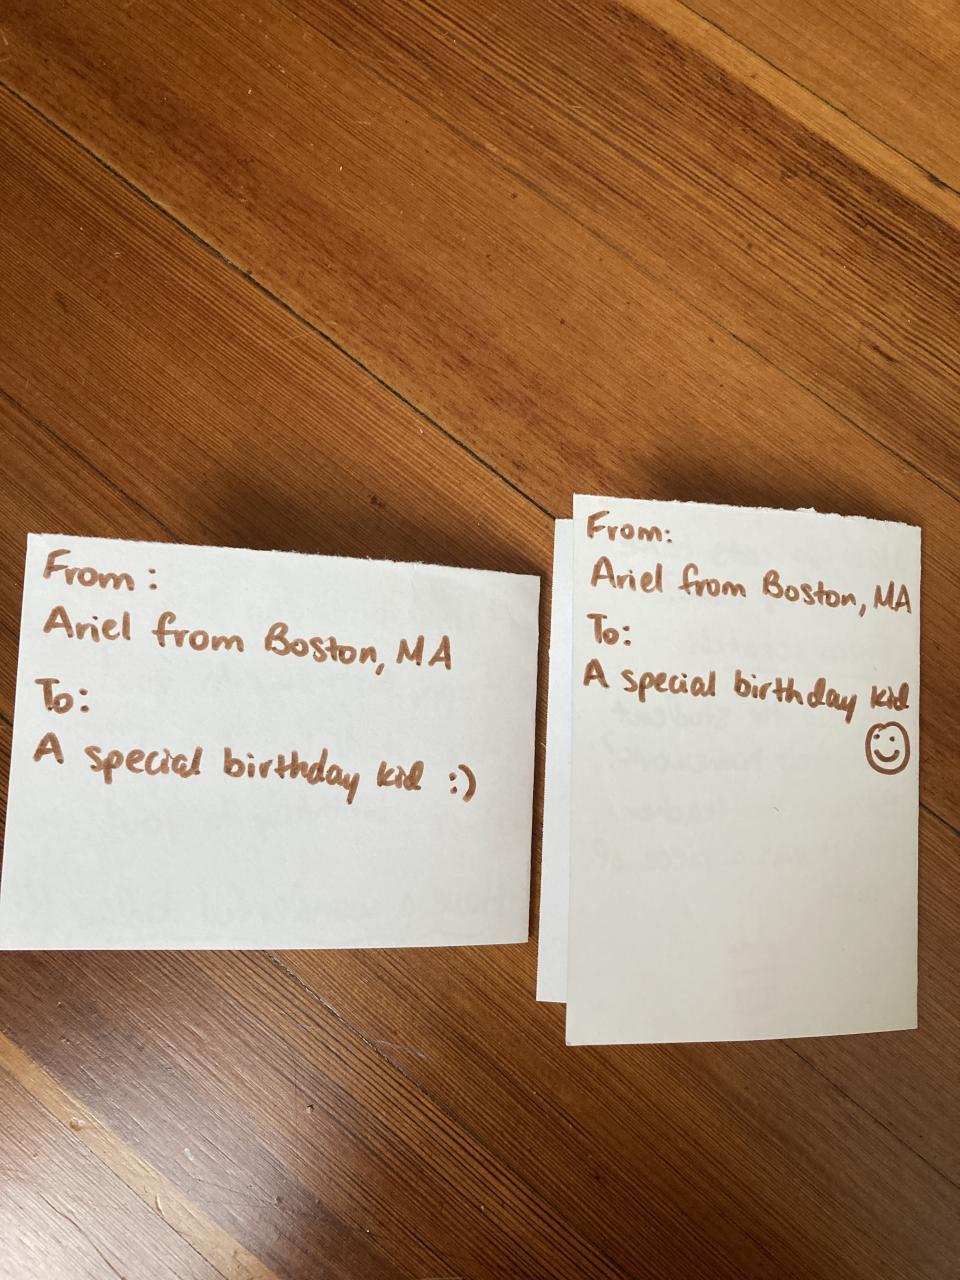 From:
Ariel from Boston, MA
To:
A special birthday kid :)
From:
Ariel from Boston, MA
To:
A special birthday kid